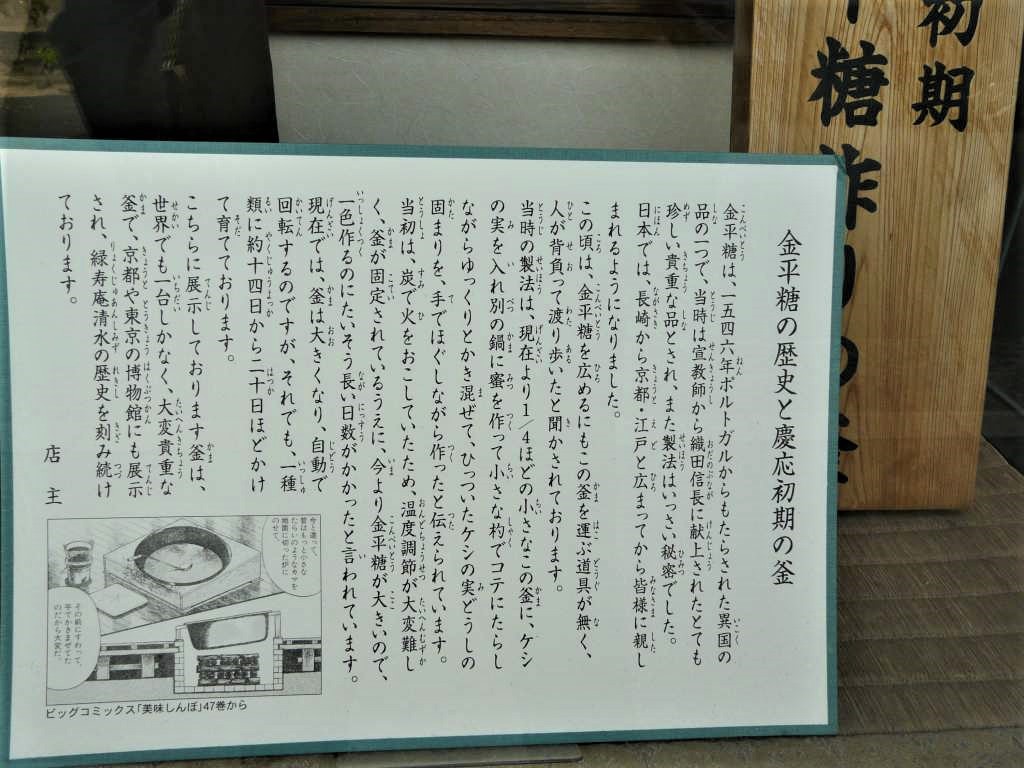 初期
糖作りの
金平糖の歴史と慶応初期の釜
金平糖は、一五四六年ポルトガルからもたらされた異国の
品の一つで、当時は宣教師から織田信長に献上されたとても
珍しい貴重な品とされ、また製法はいっさい秘密でした。
日本では、長崎から京都・江戸と広まってから皆様に親し
まれるようになりました。
この頃は、金平糖を広めるにもこの釜を運ぶ道具が無く、
人が背負って渡り歩いたと聞かされております。
当時の製法は、現在より1/4ほどの小さなこの釜に、ケシ
の実を入れ別の鍋に蜜を作って小さな杓でコテにたらし
ながらゆっくりとかき混ぜて、ひっついたケシの実どうしの
固まりを、手でほぐしながら作ったと伝えられています。
当初は、炭で火をおこしていたため、温度調節が大変難し
く、釜が固定されているうえに、今より金平糖が大きいので、
一色作るのにたいそう長い日数がかかったと言われています。
現在では、釜は大きくなり、自動で
回転するのですが、それでも、一種
類に約十四日から二十日ほどかけ
て育てております。
こちらに展示しております釜は、
世界でも一台しかなく、大変貴重な
釜で、京都や東京の博物館にも展示
され、緑寿庵清水の歴史を刻み続け
ております。
店主
今と違って、
昔はもっと小さな
たらいのようなカマを
地面に切った炉に
のせて、
その前にすわって、
手でかきまぜてた
のだから大変だ。
ビッグコミックス「美味しんぼ」47巻から